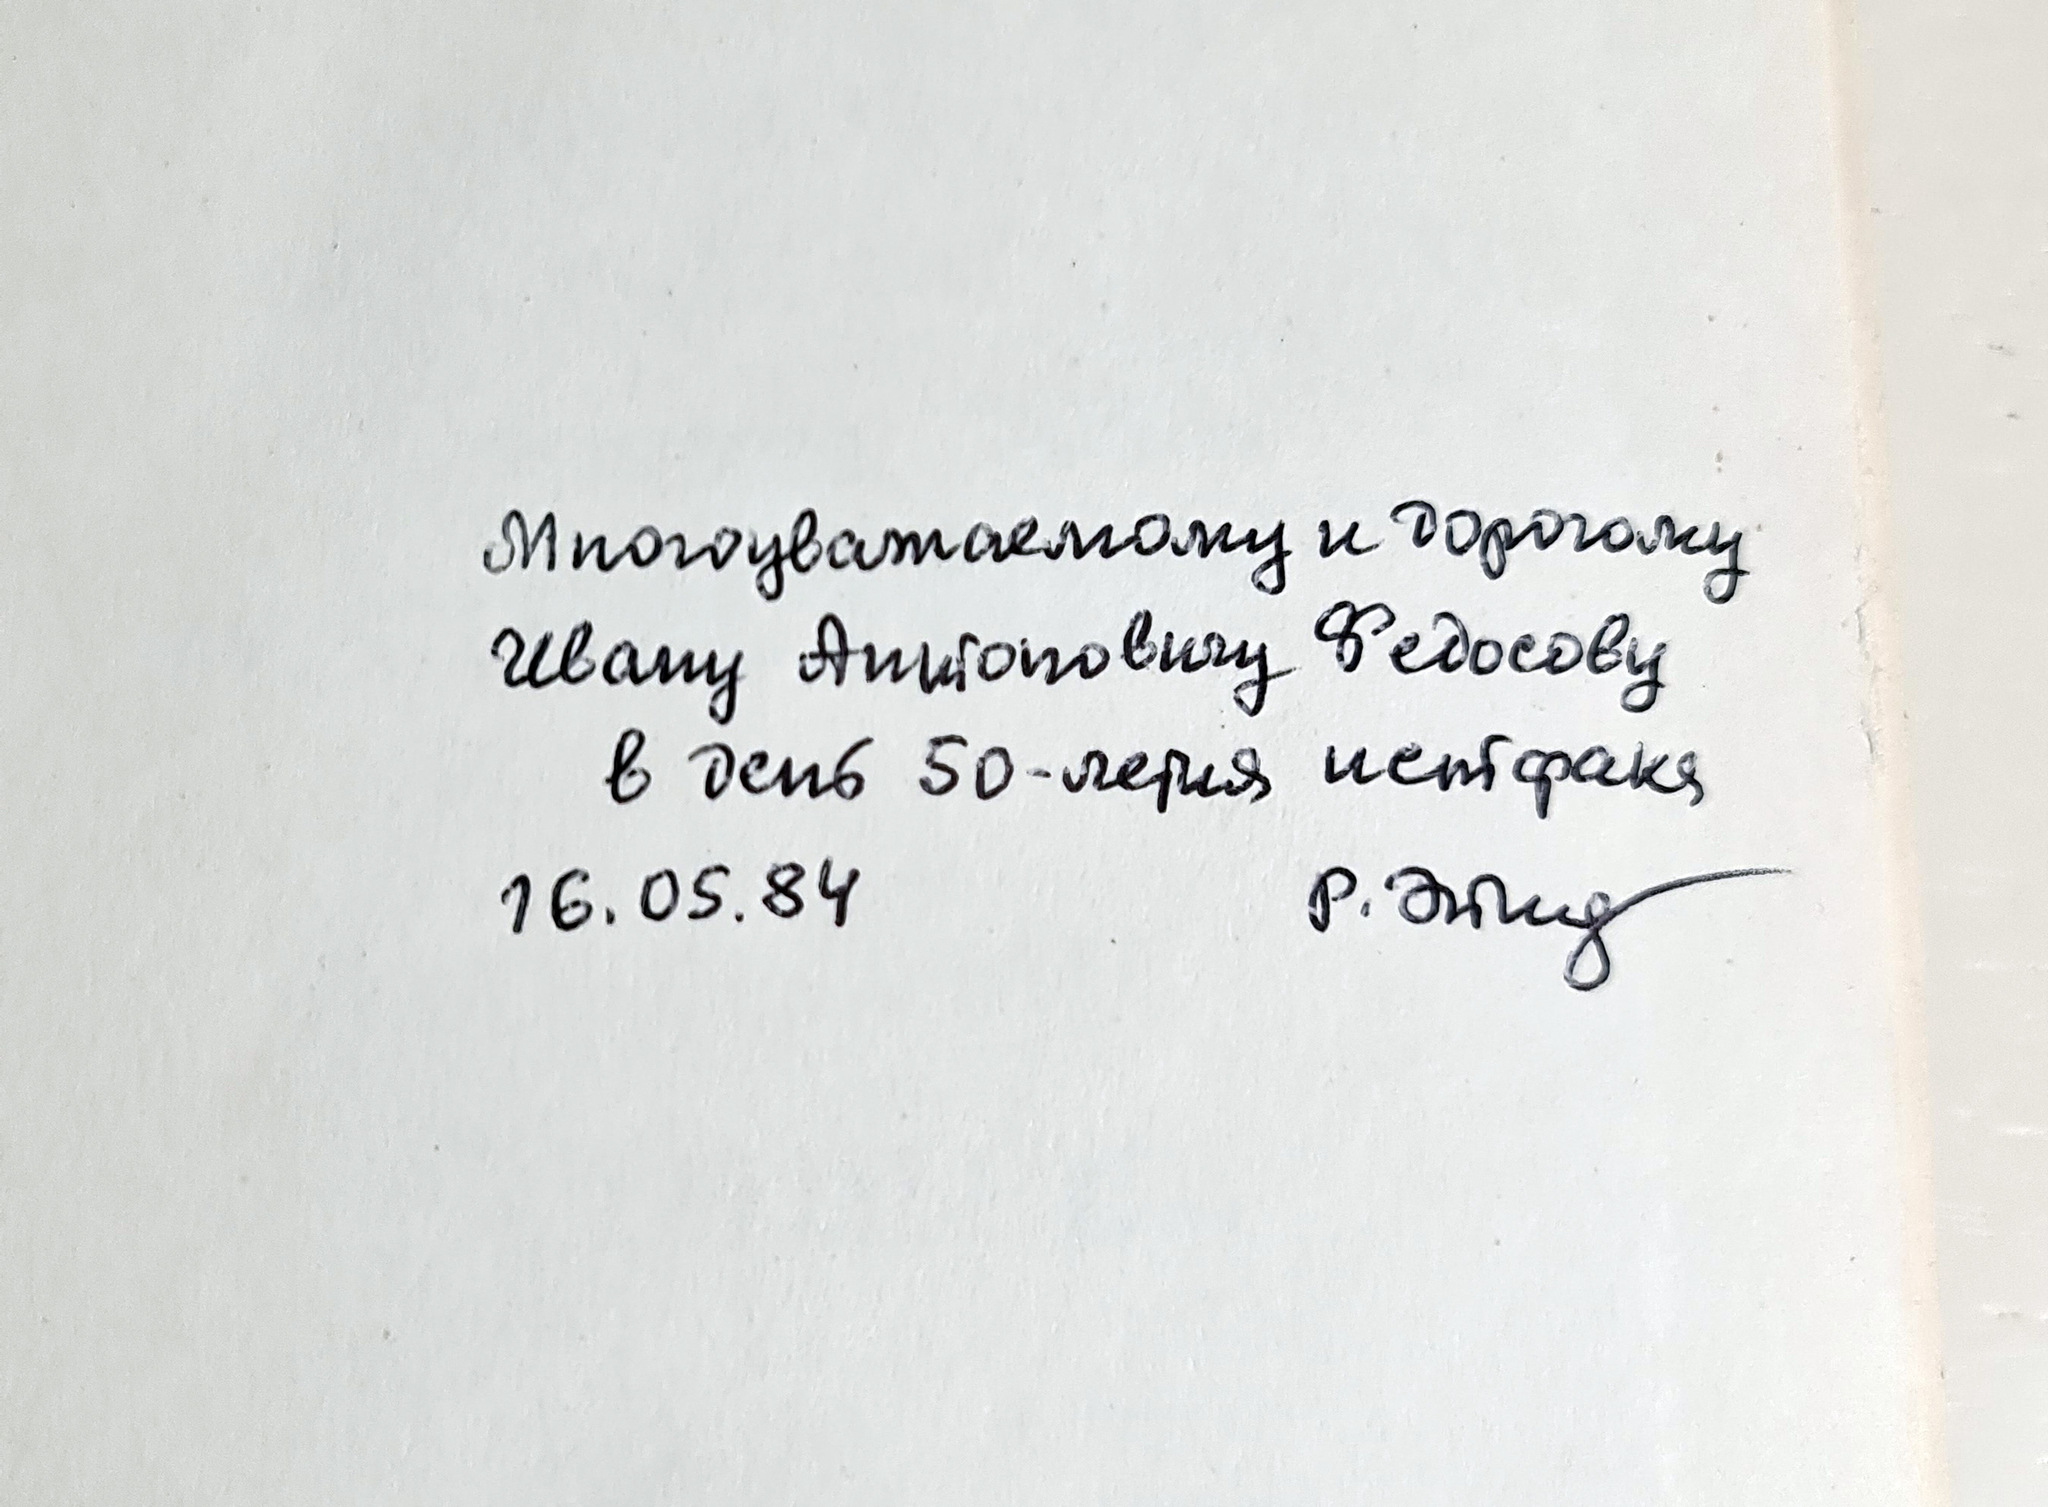 Многоуважаемому и дорогому
Ивану Антоновичу Федосову
в день 50-летия истфака
16.05.84 Р.